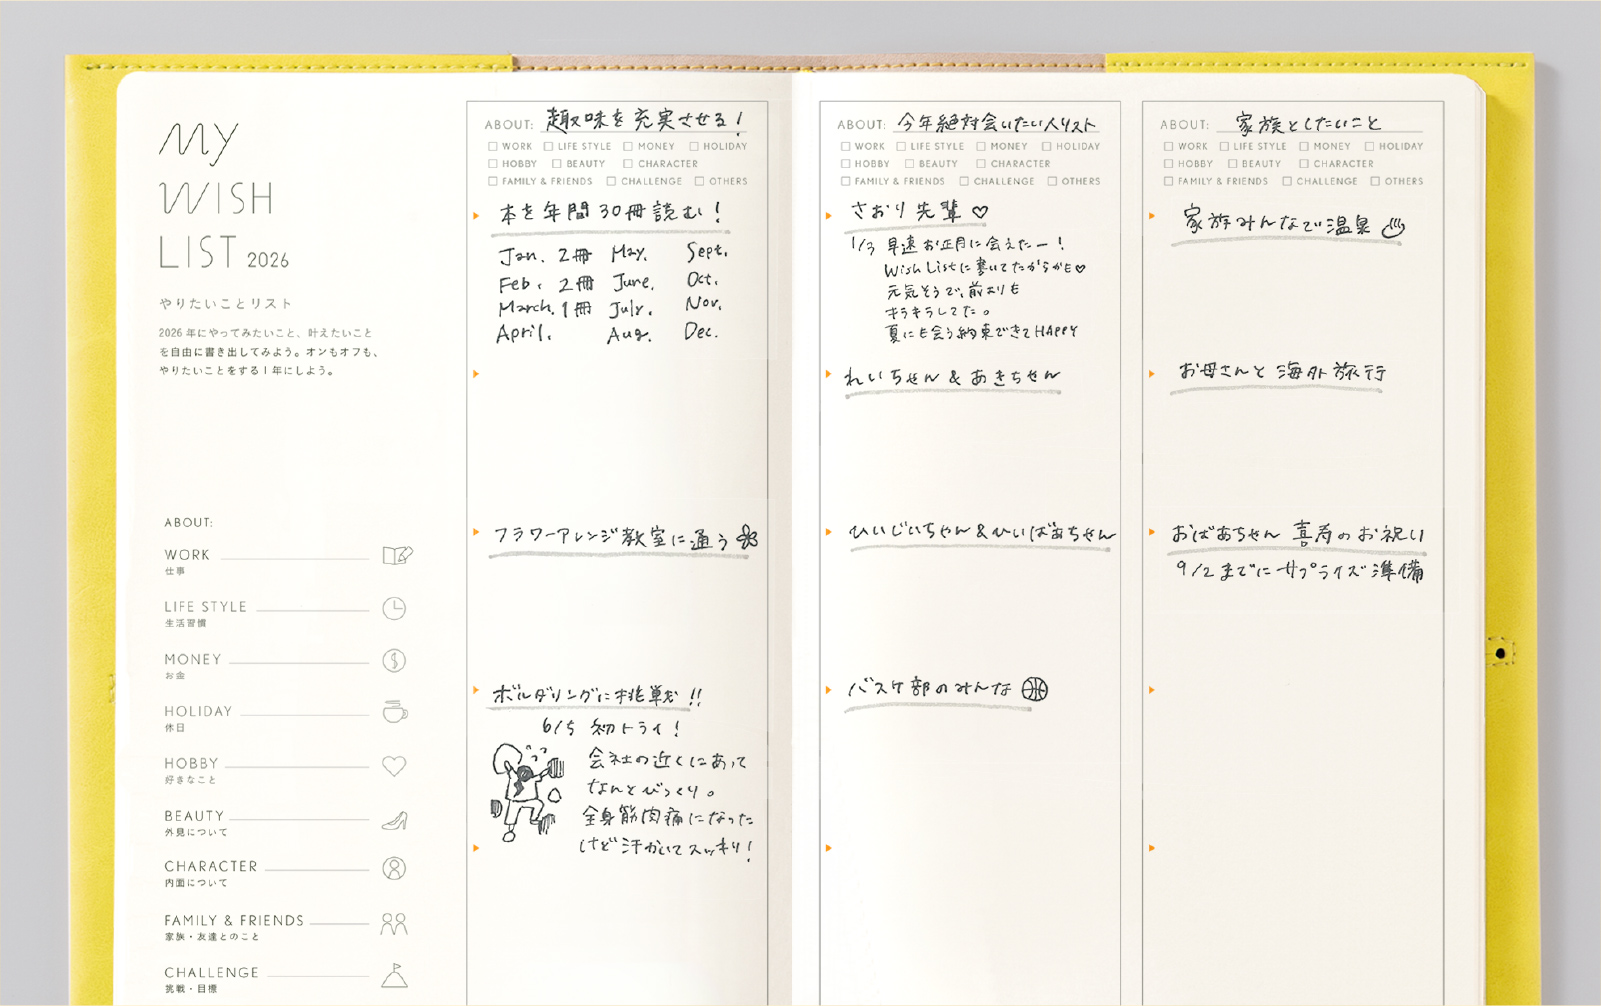 My
WISH
LIST 2026
やりたいことリスト
2026年にやってみたいこと、叶えたいこと
を自由に書き出してみよう。オンもオフも、
やりたいことをする1年にしよう。
ABOUT:
WORK
仕事
LIFE STYLE
生活習慣
MONEY
お金
HOLIDAY
休日
HOBBY
好きなこと
BEAUTY
外見について
CHARACTER
内面について
FAMILY & FRIENDS
家族・友達とのこと
CHALLENGE
挑戦・目標
ABOUT: 趣味を充実させる!
WORK LIFE STYLE MONEY HOLIDAY
HOBBY BEAUTY CHARACTER
FAMILY & FRIENDS CHALLENGE OTHERS
本を年間30冊読む!
Jan. 2冊 May. Sept.
Feb. 2冊 June. Oct.
March. 1冊 July. Nov.
April. Aug. Dec.
フラワーアレンジ教室に通う
ボルダリングに挑戦!!
6/5 初トライ!
会社の近くにあって
なんとびっくり。
全身筋肉痛になった
けど汗かいてスッキリ!
ABOUT: 今年絶対会いたい人リスト
WORK LIFE STYLE MONEY HOLIDAY
HOBBY BEAUTY CHARACTER
FAMILY & FRIENDS CHALLENGE OTHERS
さおり先輩♡
1/3 早速お正月に会えたー!
Wish Listに書いてたからかも♡
元気そうで、前よりも
キラキラしてた。
夏にも会う約束できてHAPPY
れいちゃん&あきちゃん
ひいじいちゃん&ひいばあちゃん
バスケ部のみんな
ABOUT: 家族としたいこと
WORK LIFE STYLE MONEY HOLIDAY
HOBBY BEAUTY CHARACTER
FAMILY & FRIENDS CHALLENGE OTHERS
家族みんなで温泉♨
お母さんと海外旅行
おばあちゃん喜寿のお祝い
9/2までにサプライズ準備